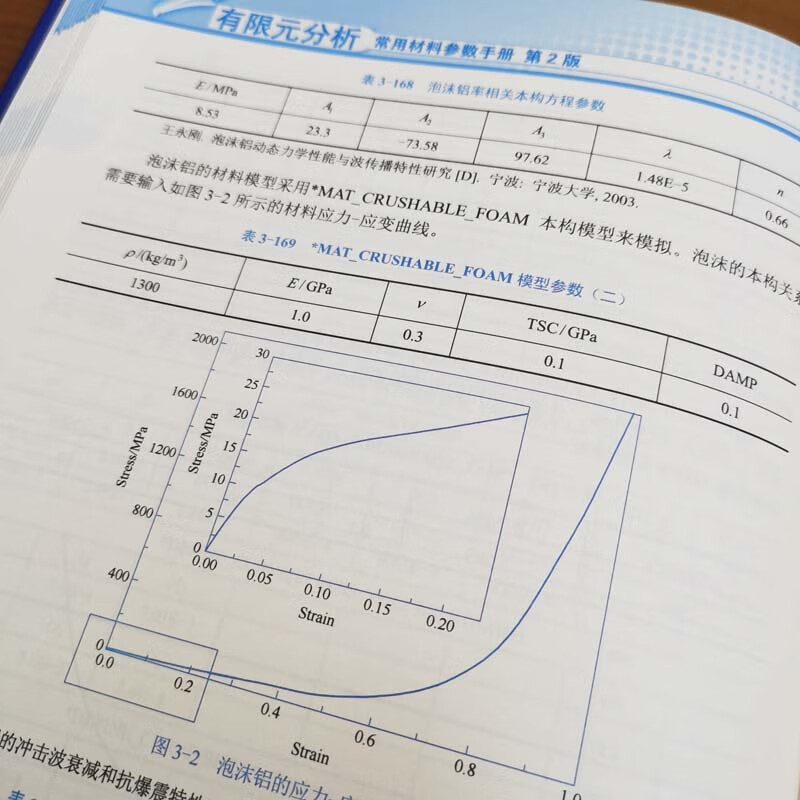 有限元分析 常用材料参数手册 第2版
表3-168 泡沫铝率相关本构方程参数
E/MPa A₁ A₂ A₃ λ n
8.53 23.3 -73.58 97.62 1.48E-5 0.66
王永刚. 泡沫铝动态力学性能与波传播特性研究[D]. 宁波: 宁波大学, 2003.
泡沫铝的材料模型采用*MAT_CRUSHABLE_FOAM 本构模型来模拟。泡沫的本构关系
需要输入如图3-2所示的材料应力-应变曲线。
表3-169 *MAT_CRUSHABLE_FOAM 模型参数（二）
ρ/(kg/m³) E/GPa ν TSC/GPa DAMP
1300 1.0 0.3 0.1 0.1
2000
1600
1200
800
400
0
Stress/MPa
30
25
20
15
10
5
0
Stress/MPa
0.00 0.05 0.10 0.15 0.20
Strain
0.0 0.2 0.4 0.6 0.8 1.0
Strain
图3-2 泡沫铝的应力-应
的冲击波衰减和抗爆震特性